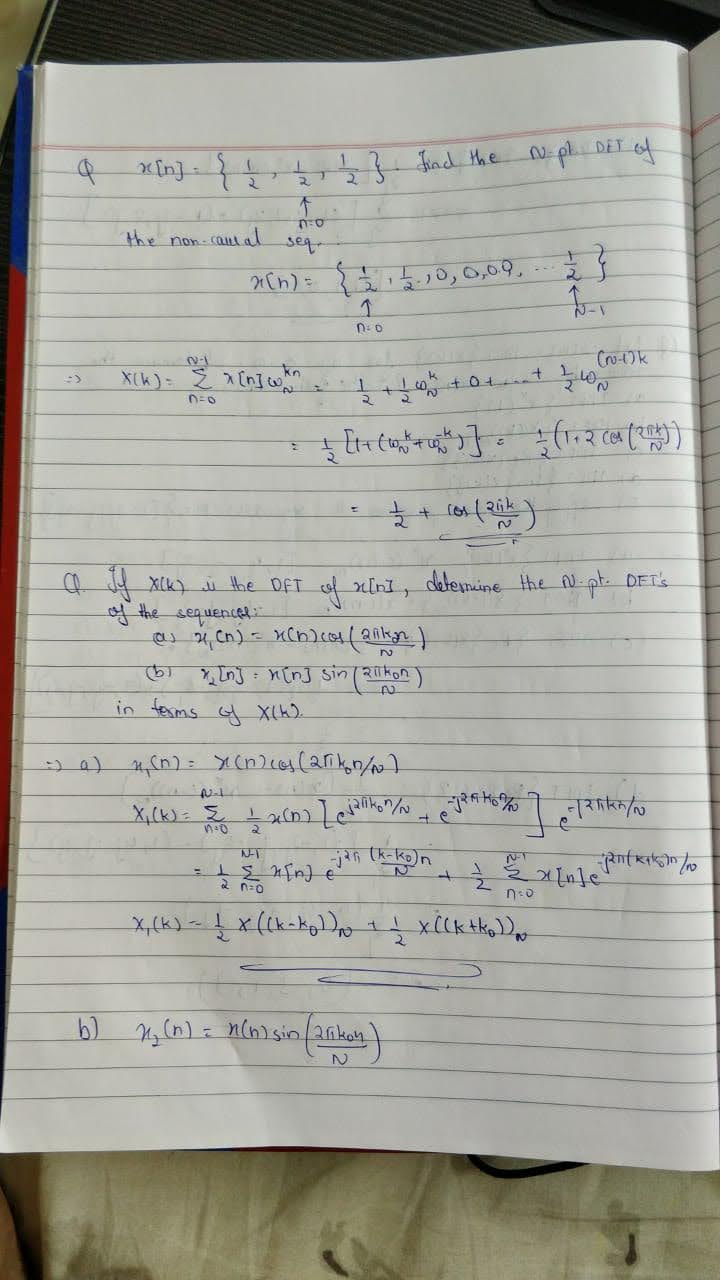 Q x[n] = { 1/2 , 1/2 , 1/2 }. Find the N-pt. DFT of
↑
n=0
the non-causal seq.
x(n) = { 1/2 , 1/2 , 0, 0, 0, 0, ... 1/2 }
↑ ↑
n=0 N-1
=> X(k) = Σ_{n=0}^{N-1} x[n] ω_N^{kn} = 1/2 + 1/2 ω_N^k + 0 + .... + 1/2 ω_N^{(N-1)k}
= 1/2 [1+(ω_N^k + ω_N^{-k})] = 1/2 (1+2 cos(2πk/N))
= 1/2 + cos(2πk/N)
Q. If X(k) is the DFT of x[n], determine the N-pt. DFT's
of the sequences:
(a) x₁(n) = x(n) cos(2πk₀n/N)
(b) x₂[n] = x[n] sin(2πk₀n/N)
in terms of X(k).
=> a) x₁(n) = x(n) cos(2πk₀n/N)
X₁(k) = Σ_{n=0}^{N-1} 1/2 x(n) [e^{j2πk₀n/N} + e^{-j2πk₀n/N}] e^{-j2πkn/N}
= 1/2 Σ_{n=0}^{N-1} x[n] e^{-j2π(k-k₀)n/N} + 1/2 Σ_{n=0}^{N-1} x[n] e^{-j2π(k+k₀)n/N}
X₁(k) = 1/2 X((k-k₀))_N + 1/2 X((k+k₀))_N
b) x₂(n) = x(n) sin(2πk₀n/N)